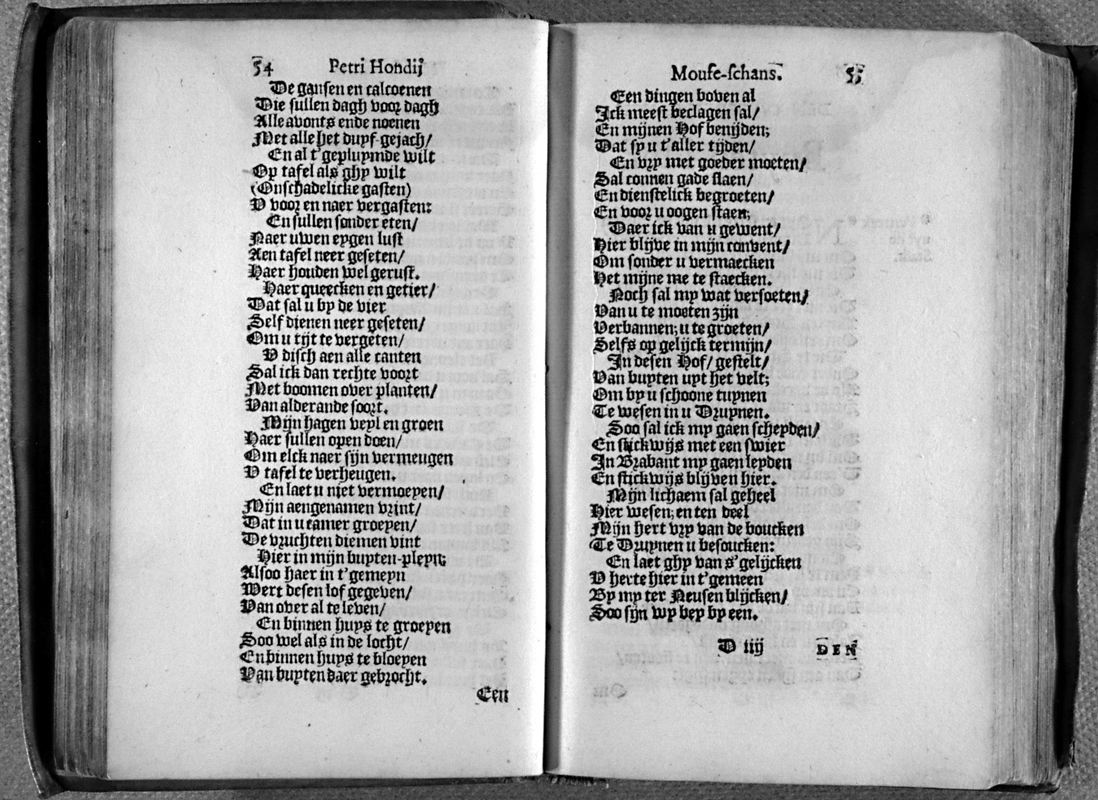 54 Petri Hondij
De gansen en calcoenen
Die sullen dagh voor dagh
Alle avonts ende noenen
Met alle het duyf-gejach/
En al t'gepluymde wilt
Op tafel als ghy wilt
(Onschadelicke gasten)
V voor en naer vergasten:
En sullen sonder eten/
Naer uwen eygen lust
Aen tafel neer geseten/
Haer houden wel gerust.
Haer queecken en getier/
Dat sal u by de vier
Self dienen neer geseten/
Om u tijt te vergeten/
V disch aen alle canten
Sal ick dan rechte voort
Met boomen over planten/
Van alderande soort.
Mijn hagen veyl en groen
Haer sullen open doen/
Om elck naer sijn vermeugen
V tafel te verheugen.
En laet u niet vermoeyen/
Mijn aengenamen vrint/
Dat in u camer groeyen/
De vruchten diemen vint
Hier in mijn buyten-pleyn:
Alsoo haer in t'gemeyn
Wert desen lof gegeven/
Van over al te leven/
En binnen huys te groeyen
Soo wel als in de locht/
En binnen huys te bloeyen
Van buyten daer gebrocht.
Een
Mouse-schans. 55
Een dingen boven al
Ick meest beclagen sal/
En mijnen Hof benijden;
Dat sy u t'aller tijden/
En vry met goeder moeten/
Sal connen gade slaen/
En dienstelick begroeten/
En voor u oogen staen;
Daer ick van u gewent/
Hier blijve in mijn convent/
Om sonder u vermaecken
Het mijne me te staecken.
Noch sal my wat versoeten/
Van u te moeten zijn
Verbannen; u te groeten/
Selfs op gelijck termijn/
In desen Hof/ gestelt/
Van buyten uyt het velt;
Om by u schoone tuynen
Te wesen in u Druynen.
Soo sal ick my gaen scheyden/
En stickwijs met een swier
In Brabant my gaen leyden
En stickwijs blijven hier.
Mijn lichaem sal geheel
Hier wesen; en ten deel
Mijn hert vry van de boucken
Te Druynen u besoucken:
En laet ghy van s'gelijcken
V herte hier in t'gemeen
By my ter Neusen blijcken/
Soo sijn wy bey by een.
D iiij DEN